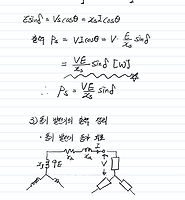 E sinδ = Vs cosθ = xs I cosθ
출력 Ps = VI cosθ = V · E/xs sinδ
= VE/xs sinδ [W]
∴ Ps = VE/xs sinδ
3) 동기 발전기의 출력
· 동기 발전기 등가 회로
xs ra xa I
E V